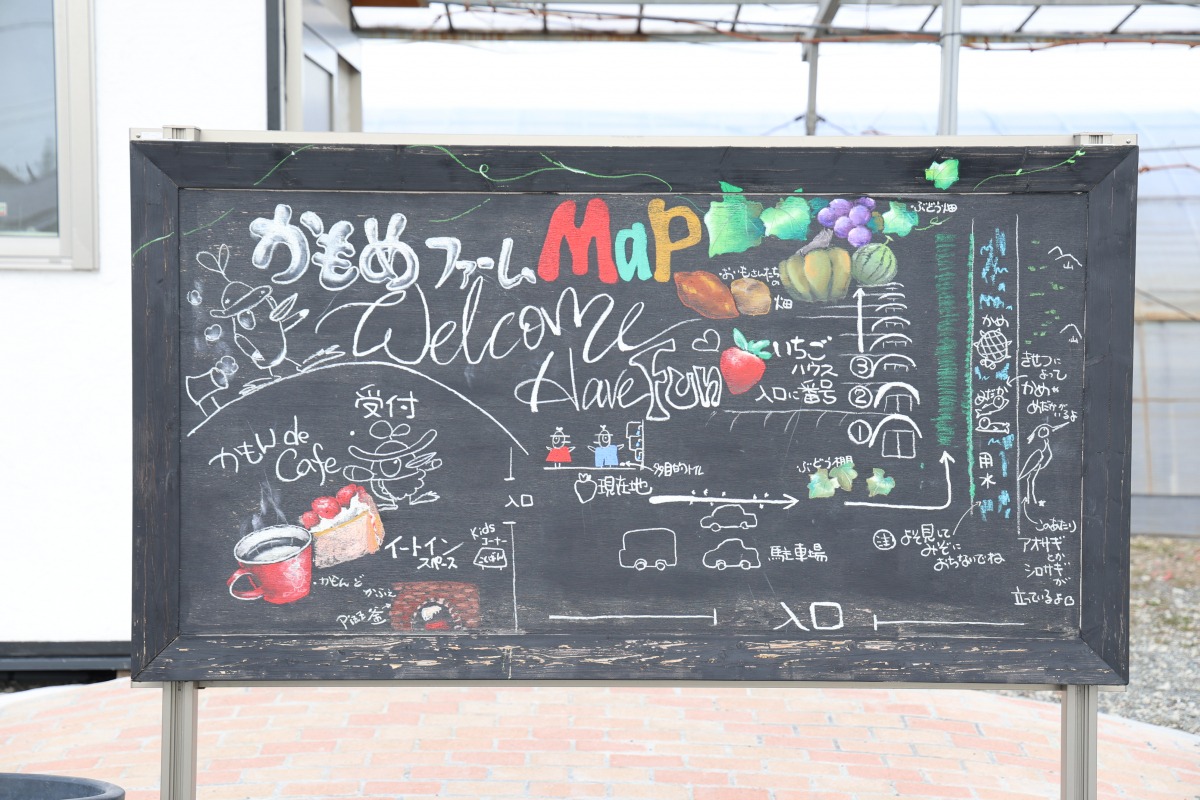 かもめファーム Map
ぶどう畑
おいもさんたちの
畑
Welcome
Have Fun
いちご
ハウス
入口に番号
③
②
①
山
山
かめ
めだか
用水
きせつに
よって
かめや
めだかがいるよ
受付
かもんde
Cafe
入口
多目的トイレ
現在地
ぶどう棚
Kids
コーナー
イートイン
スペース
駐車場
㊟よそ見して
みぞに
おちないでね
このあたり
アオサギ
とか
シロサギ
が
立っているよ
かもんど
かふぇ
窯
入口